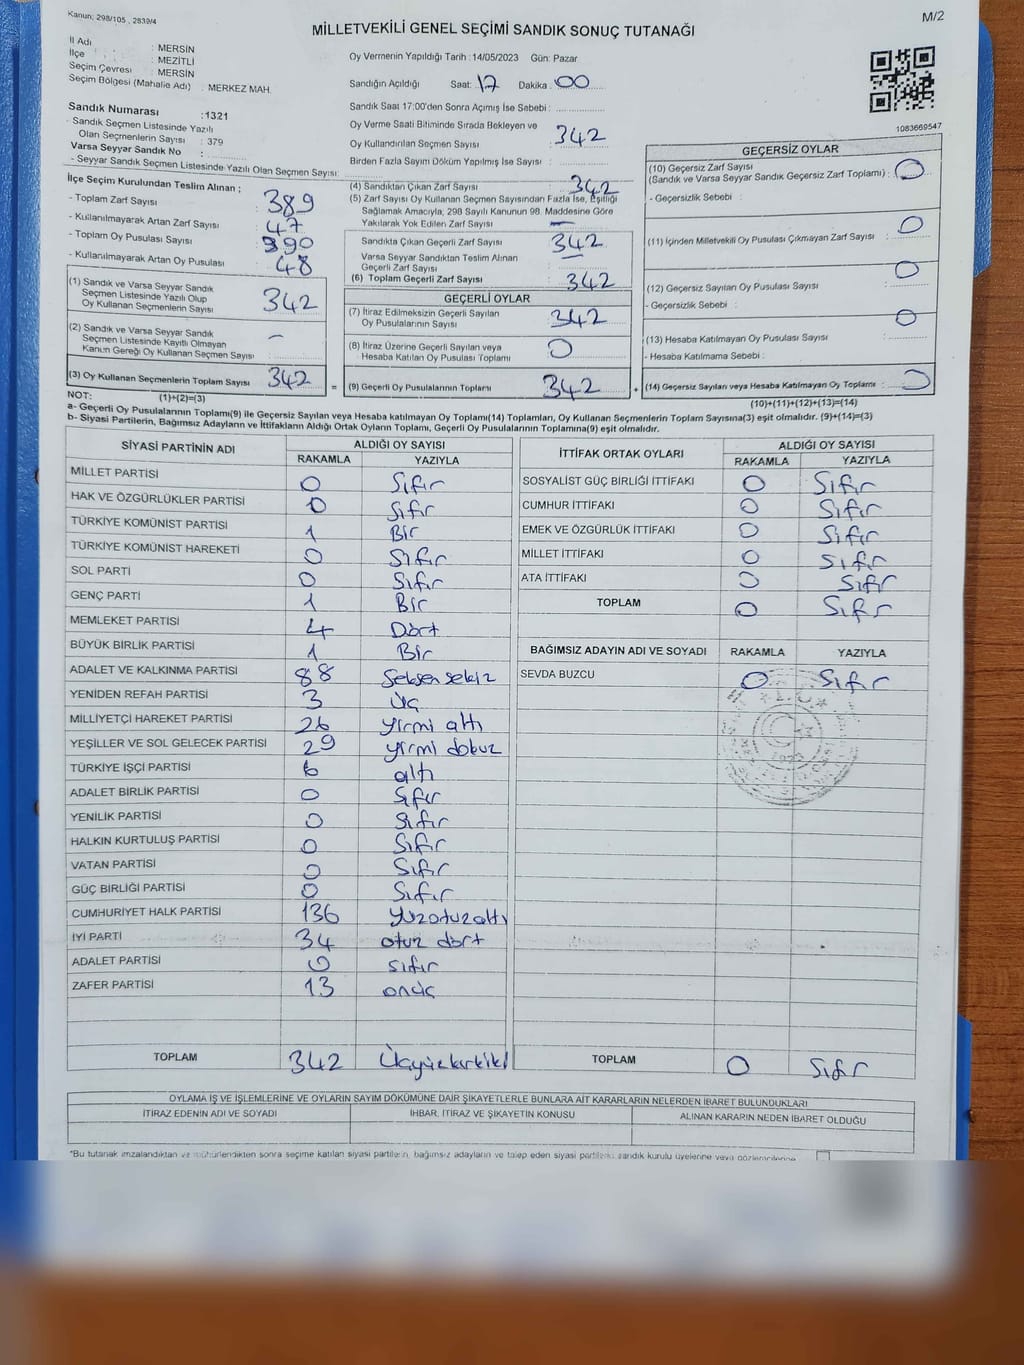 Kanun; 298/105 , 2839/4
M/2
MİLLETVEKİLİ GENEL SEÇİMİ SANDIK SONUÇ TUTANAĞI
İl Adı : MERSİN
İlçe : MEZİTLİ
Seçim Çevresi : MERSİN
Seçim Bölgesi (Mahalle Adı) : MERKEZ MAH.
Oy Vermenin Yapıldığı Tarih :14/05/2023 Gün: Pazar
Sandığın Açıldığı Saat: 17 Dakika: 00
Sandık Saat 17:00'den Sonra Açımış İse Sebebi :
Sandık Numarası :1321
- Sandık Seçmen Listesinde Yazılı
Olan Seçmenlerin Sayısı : 379
Varsa Seyyar Sandık No :
- Seyyar Sandık Seçmen Listesinde Yazılı Olan Seçmen Sayısı:
Oy Verme Saati Bitiminde Sırada Bekleyen ve
Oy Kullandırılan Seçmen Sayısı : 342
Birden Fazla Sayım Döküm Yapılmış İse Sayısı :
1083669547
İlçe Seçim Kurulundan Teslim Alınan ;
- Toplam Zarf Sayısı : 389
- Kullanılmayarak Artan Zarf Sayısı : 47
- Toplam Oy Pusulası Sayısı : 390
- Kullanılmayarak Artan Oy Pusulası : 48
(1) Sandık ve Varsa Seyyar Sandık
Seçmen Listesinde Yazılı Olup
Oy Kullanan Seçmenlerin Sayısı : 342
(2) Sandık ve Varsa Seyyar Sandık
Seçmen Listesinde Kayıtlı Olmayan
Kanun Gereği Oy Kullanan Seçmen Sayısı : -
(3) Oy Kullanan Seçmenlerin Toplam Sayısı 342
(1)+(2)=(3)
(4) Sandıktan Çıkan Zarf Sayısı : 342
(5) Zarf Sayısı Oy Kullanan Seçmen Sayısından Fazla İse, Eşitliği
Sağlamak Amacıyla, 298 Sayılı Kanunun 98. Maddesine Göre
Yakılarak Yok Edilen Zarf Sayısı : -
Sandıkta Çıkan Geçerli Zarf Sayısı : 342
Varsa Seyyar Sandıktan Teslim Alınan
Geçerli Zarf Sayısı : -
(6) Toplam Geçerli Zarf Sayısı : 342
GEÇERLİ OYLAR
(7) İtiraz Edilmeksizin Geçerli Sayılan
Oy Pusulalarının Sayısı : 342
(8) İtiraz Üzerine Geçerli Sayılan veya
Hesaba Katılan Oy Pusulası Toplamı : 0
= (9) Geçerli Oy Pusulalarının Toplamı 342 +
GEÇERSİZ OYLAR
(10) Geçersiz Zarf Sayısı
(Sandık ve Varsa Seyyar Sandık Geçersiz Zarf Toplamı) : 0
- Geçersizlik Sebebi :
(11) İçinden Milletvekili Oy Pusulası Çıkmayan Zarf Sayısı : 0
(12) Geçersiz Sayılan Oy Pusulası Sayısı : 0
- Geçersizlik Sebebi :
(13) Hesaba Katılmayan Oy Pusulası Sayısı : 0
- Hesaba Katılmama Sebebi :
(14) Geçersiz Sayılan veya Hesaba Katılmayan Oy Toplamı : 0
(10)+(11)+(12)+(13)=(14)
NOT:
a- Geçerli Oy Pusulalarının Toplamı(9) ile Geçersiz Sayılan veya Hesaba katılmayan Oy Toplamı(14) Toplamları, Oy Kullanan Seçmenlerin Toplam Sayısına(3) eşit olmalıdır. (9)+(14)=(3)
b- Siyasi Partilerin, Bağımsız Adayların ve İttifakların Aldığı Ortak Oyların Toplamı, Geçerli Oy Pusulalarının Toplamına(9) eşit olmalıdır.
SİYASİ PARTİNİN ADI ALDIĞI OY SAYISI
RAKAMLA YAZIYLA
MİLLET PARTİSİ 0 Sıfır
HAK VE ÖZGÜRLÜKLER PARTİSİ 0 Sıfır
TÜRKİYE KOMÜNİST PARTİSİ 1 Bir
TÜRKİYE KOMÜNİST HAREKETİ 0 Sıfır
SOL PARTİ 0 Sıfır
GENÇ PARTİ 1 Bir
MEMLEKET PARTİSİ 4 Dört
BÜYÜK BİRLİK PARTİSİ 1 Bir
ADALET VE KALKINMA PARTİSİ 88 Seksen sekiz
YENİDEN REFAH PARTİSİ 3 üç
MİLLİYETÇİ HAREKET PARTİSİ 26 yirmi altı
YEŞİLLER VE SOL GELECEK PARTİSİ 29 yirmi dokuz
TÜRKİYE İŞÇİ PARTİSİ 6 altı
ADALET BİRLİK PARTİSİ 0 Sıfır
YENİLİK PARTİSİ 0 Sıfır
HALKIN KURTULUŞ PARTİSİ 0 Sıfır
VATAN PARTİSİ 0 Sıfır
GÜÇ BİRLİĞİ PARTİSİ 0 Sıfır
CUMHURİYET HALK PARTİSİ 136 yüzotuzaltı
İYİ PARTİ 34 otuz dört
ADALET PARTİSİ 0 sıfır
ZAFER PARTİSİ 13 onüç
TOPLAM 342 Üçyüzkırkiki
İTTİFAK ORTAK OYLARI ALDIĞI OY SAYISI
RAKAMLA YAZIYLA
SOSYALİST GÜÇ BİRLİĞİ İTTİFAKI 0 Sıfır
CUMHUR İTTİFAKI 0 Sıfır
EMEK VE ÖZGÜRLÜK İTTİFAKI 0 Sıfır
MİLLET İTTİFAKI 0 Sıfır
ATA İTTİFAKI 0 Sıfır
TOPLAM 0 Sıfır
BAĞIMSIZ ADAYIN ADI VE SOYADI RAKAMLA YAZIYLA
SEVDA BUZCU 0 Sıfır
TOPLAM 0 Sıfır
OYLAMA İŞ VE İŞLEMLERİNE VE OYLARIN SAYIM DÖKÜMÜNE DAİR ŞİKAYETLERLE BUNLARA AİT KARARLARIN NELERDEN İBARET BULUNDUKLARI
İTİRAZ EDENİN ADI VE SOYADI İHBAR, İTİRAZ VE ŞİKAYETİN KONUSU ALINAN KARARIN NEDEN İBARET OLDUĞU
*Bu tutanak imzalandıktan ve mühürlendikten sonra seçime katılan siyasi partilerin, bağımsız adayların ve talep eden siyasi partilerin sandık kurulu üyelerine veya gözlemcilerine